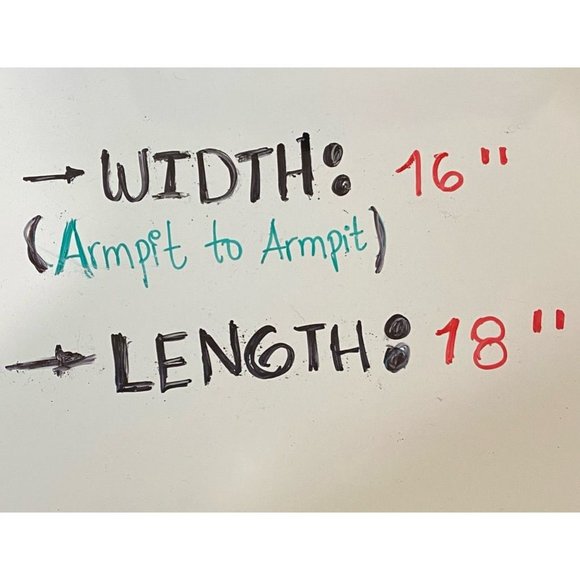 → WIDTH: 16"
(Armpit to Armpit)
→ LENGTH: 18"